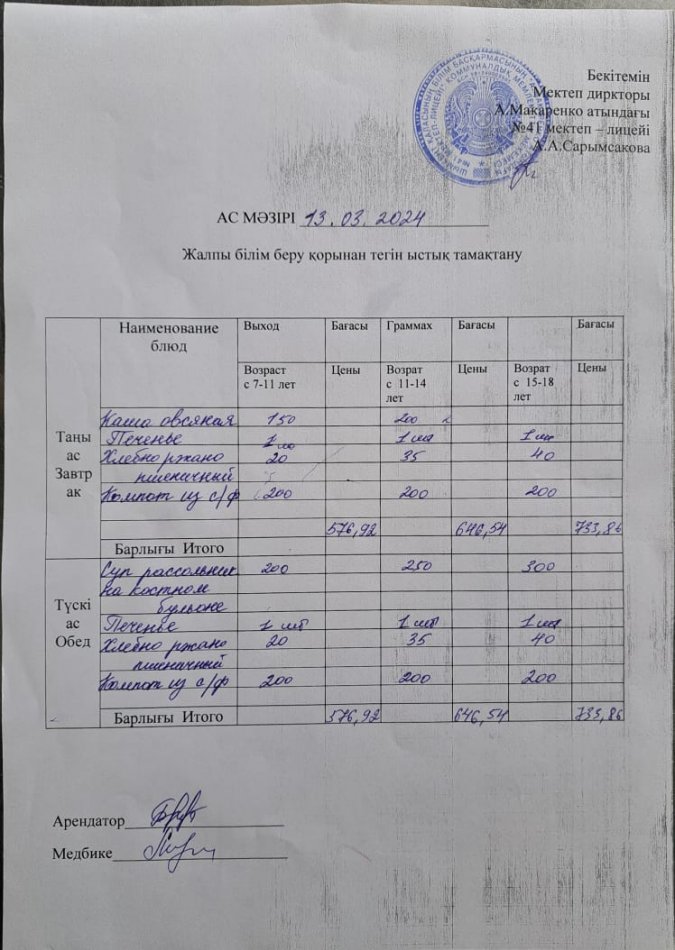 Бекітемін
Мектеп диркторы
А.Макаренко атындағы
№41 мектеп – лицейі
А.А.Сарымсакова
АС МӘЗІРІ 13.03.2024
Жалпы білім беру қорынан тегін ыстық тамақтану
Наименование блюд Выход Бағасы Граммах Бағасы Бағасы
Возраст с 7-11 лет Цены Возрат с 11-14 лет Цены Возрат с 15-18 лет Цены
Таңы ас Завтр ак
Каша овсяная 150 200
Печенье 1 шт 1 шт 1 шт
Хлебно ржано 20 35 40
пшеничный
Компот из с/ф 200 200 200
576,92 646,54 733,86
Барлығы Итого
Түскі ас Обед
Суп рассольник 200 250 300
на костном
бульоне
Печенье 1 шт 1 шт 1 шт
Хлебно ржано 20 35 40
пшеничный
Компот из с/ф 200 200 200
Барлығы Итого 576,92 646,54 733,86
Арендатор
Медбике